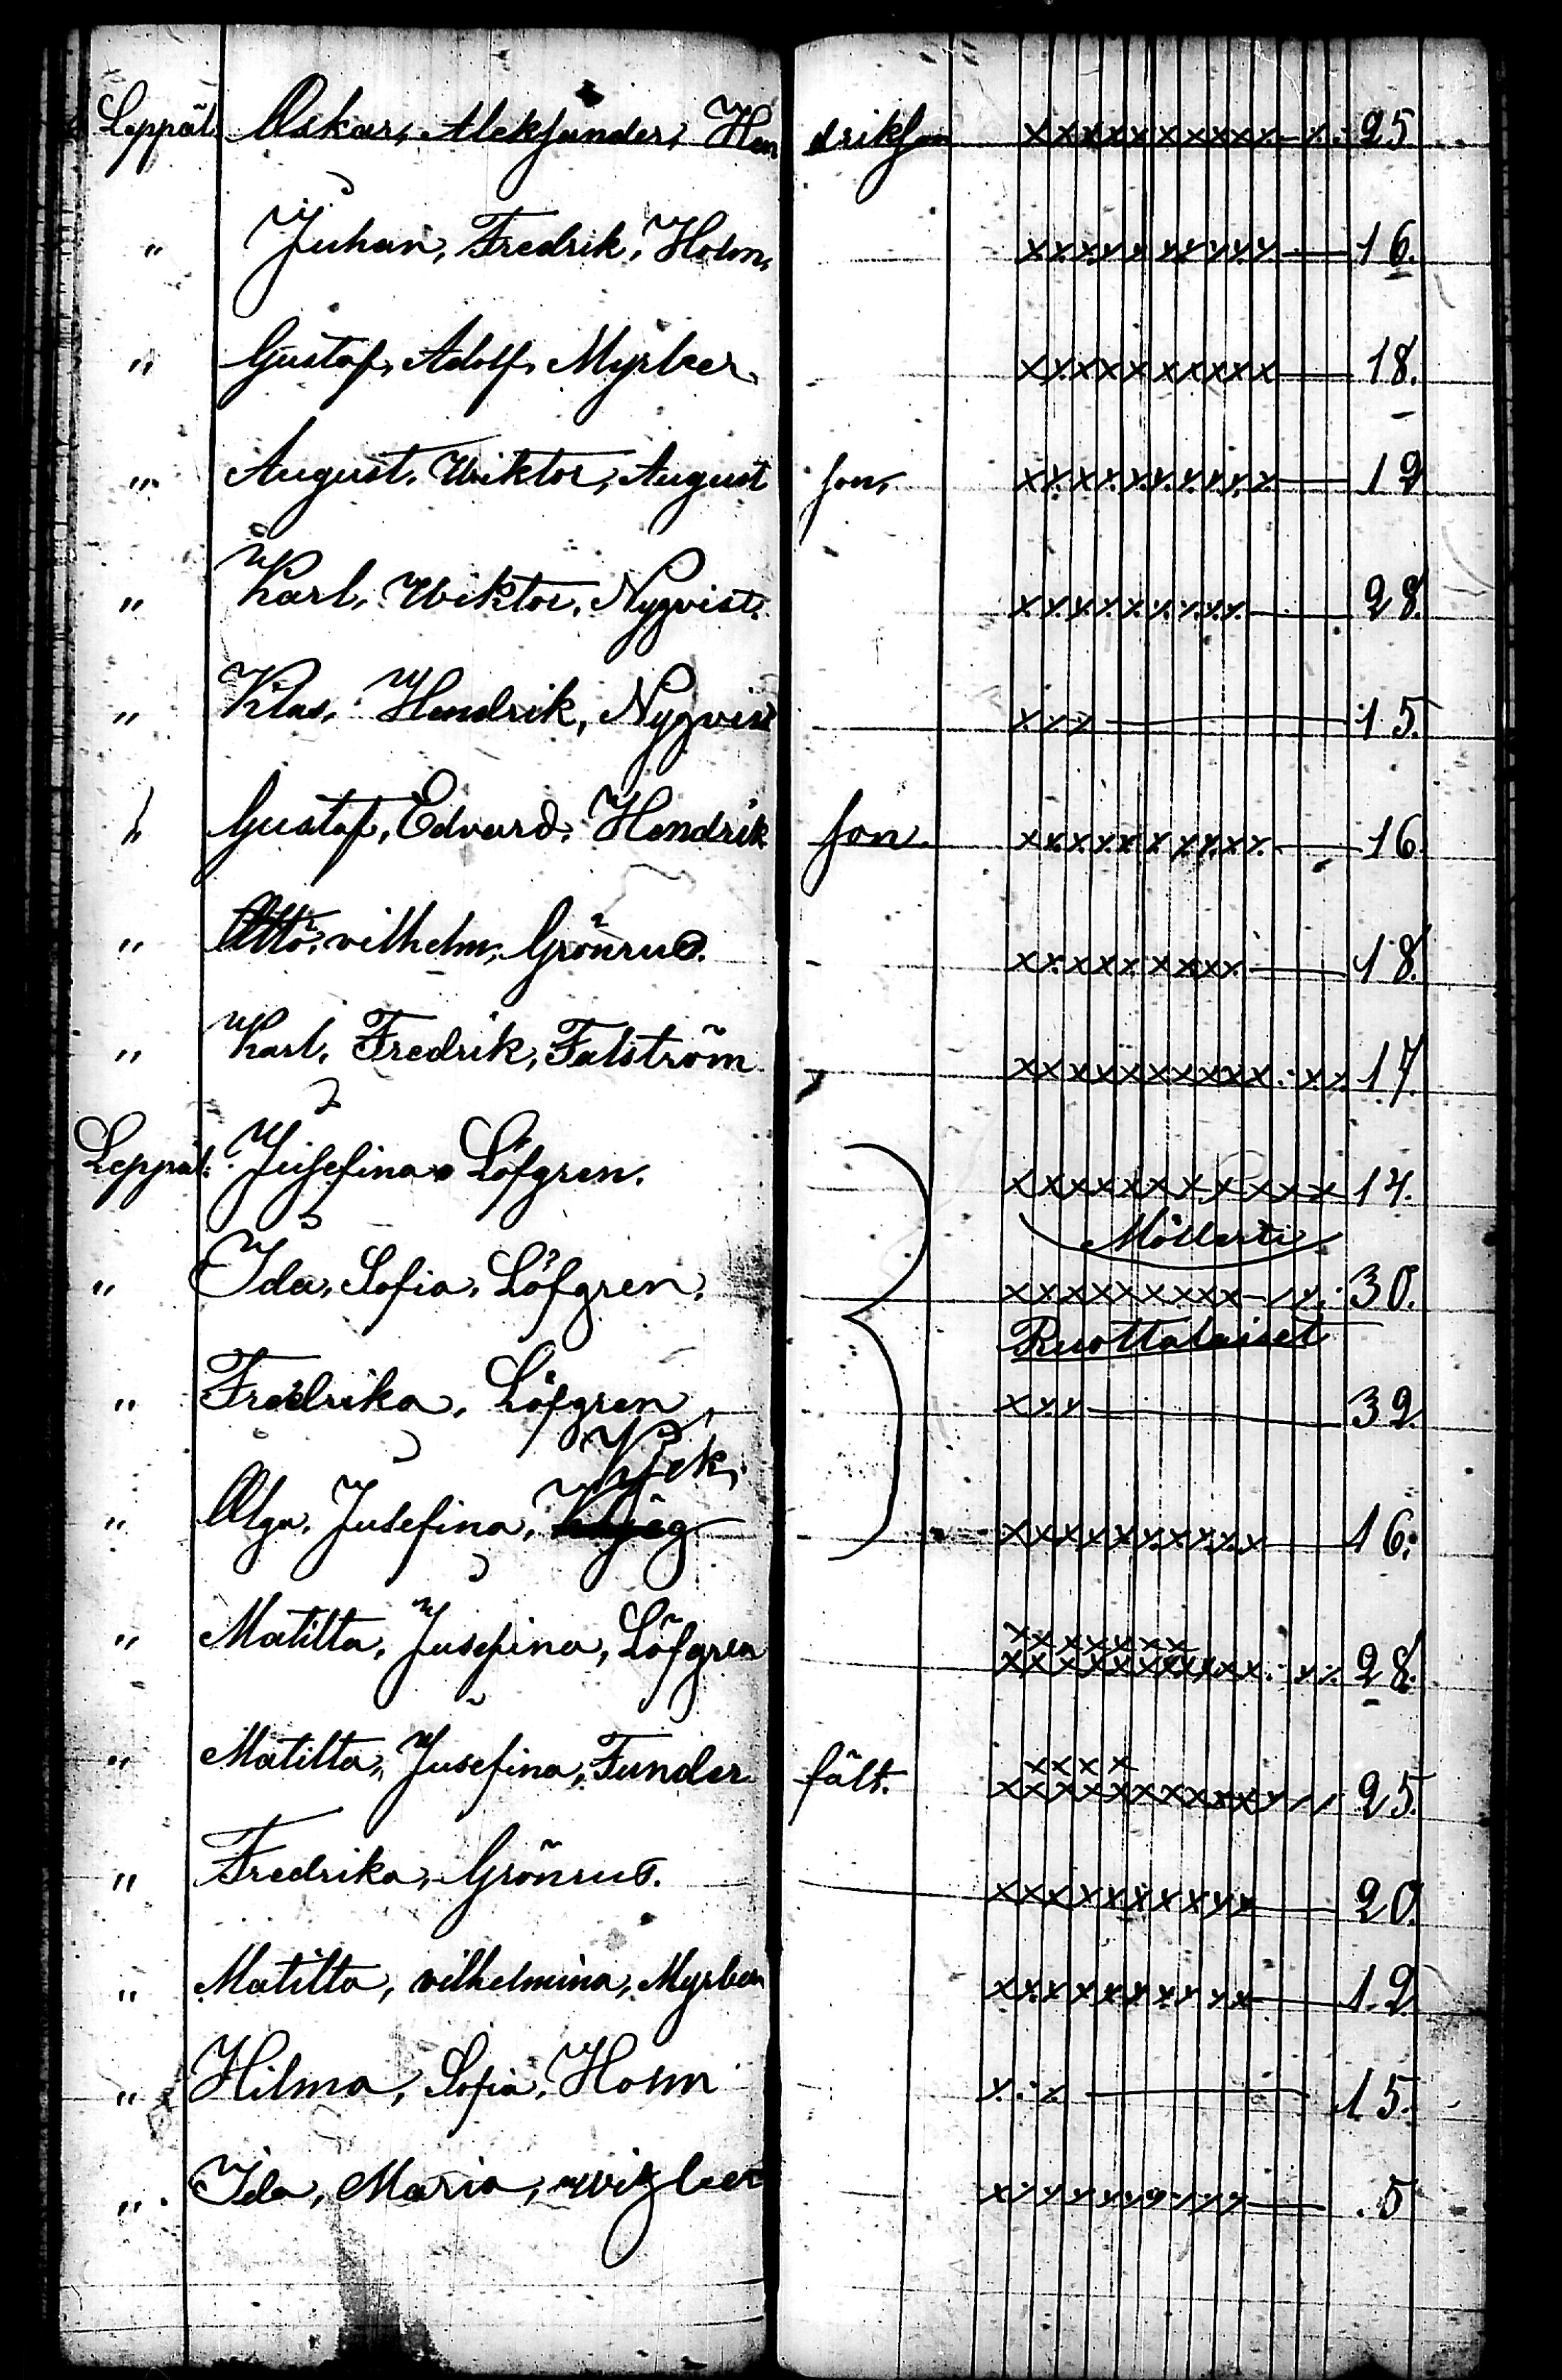 Leppäl. Oskar, Aleksander, Hendrikson xxxxxxxxxx 25
" Juhan, Fredrik, Holm, xxxxxxxxxx 16.
" Gustaf, Adolf, Myrber. xxxxxxxxxx 18.
" August, Wiktor, August son, xxxxxxxxxx 12
" Karl, Wiktor, Nyqvist. xxxxxxxxx 28.
" Klas, Hendrik, Nyqvist xxx 15.
" Gustaf, Edvard, Hendrik son. xxxxxxxxxx 16.
" Otto, vilhelm, Grönrus. xxxxxxxxx 18.
" Karl, Fredrik, Falström xxxxxxxxxx xx 17.
Leppäl. Jusefina Löfgren. xxxxxxxxxxxx 14.
Möllerti
" Ida, Sofia, Löfgren. xxxxxxxxx 30.
Ruottalaiset
" Fredrika, Löfgren, xxx 32.
Kjek,
" Olga, Jusefina, xxxxxxxxxx 16.
xxxxxxx
" Matilta, Jusefina, Löfgren xxxxxxxxxx xx 28.
xxxx
" Matilta, Jusefina, Funder fält. xxxxxxxxxx 25.
" Fredrika, Grönrus. xxxxxxxxxx 20.
" Matilta, vilhelmina, Myrber xxxxxxxxxx 12
" Hilma, Sofia, Holm x x 15.
" Ida, Maria, xxxxxxxxxx 5